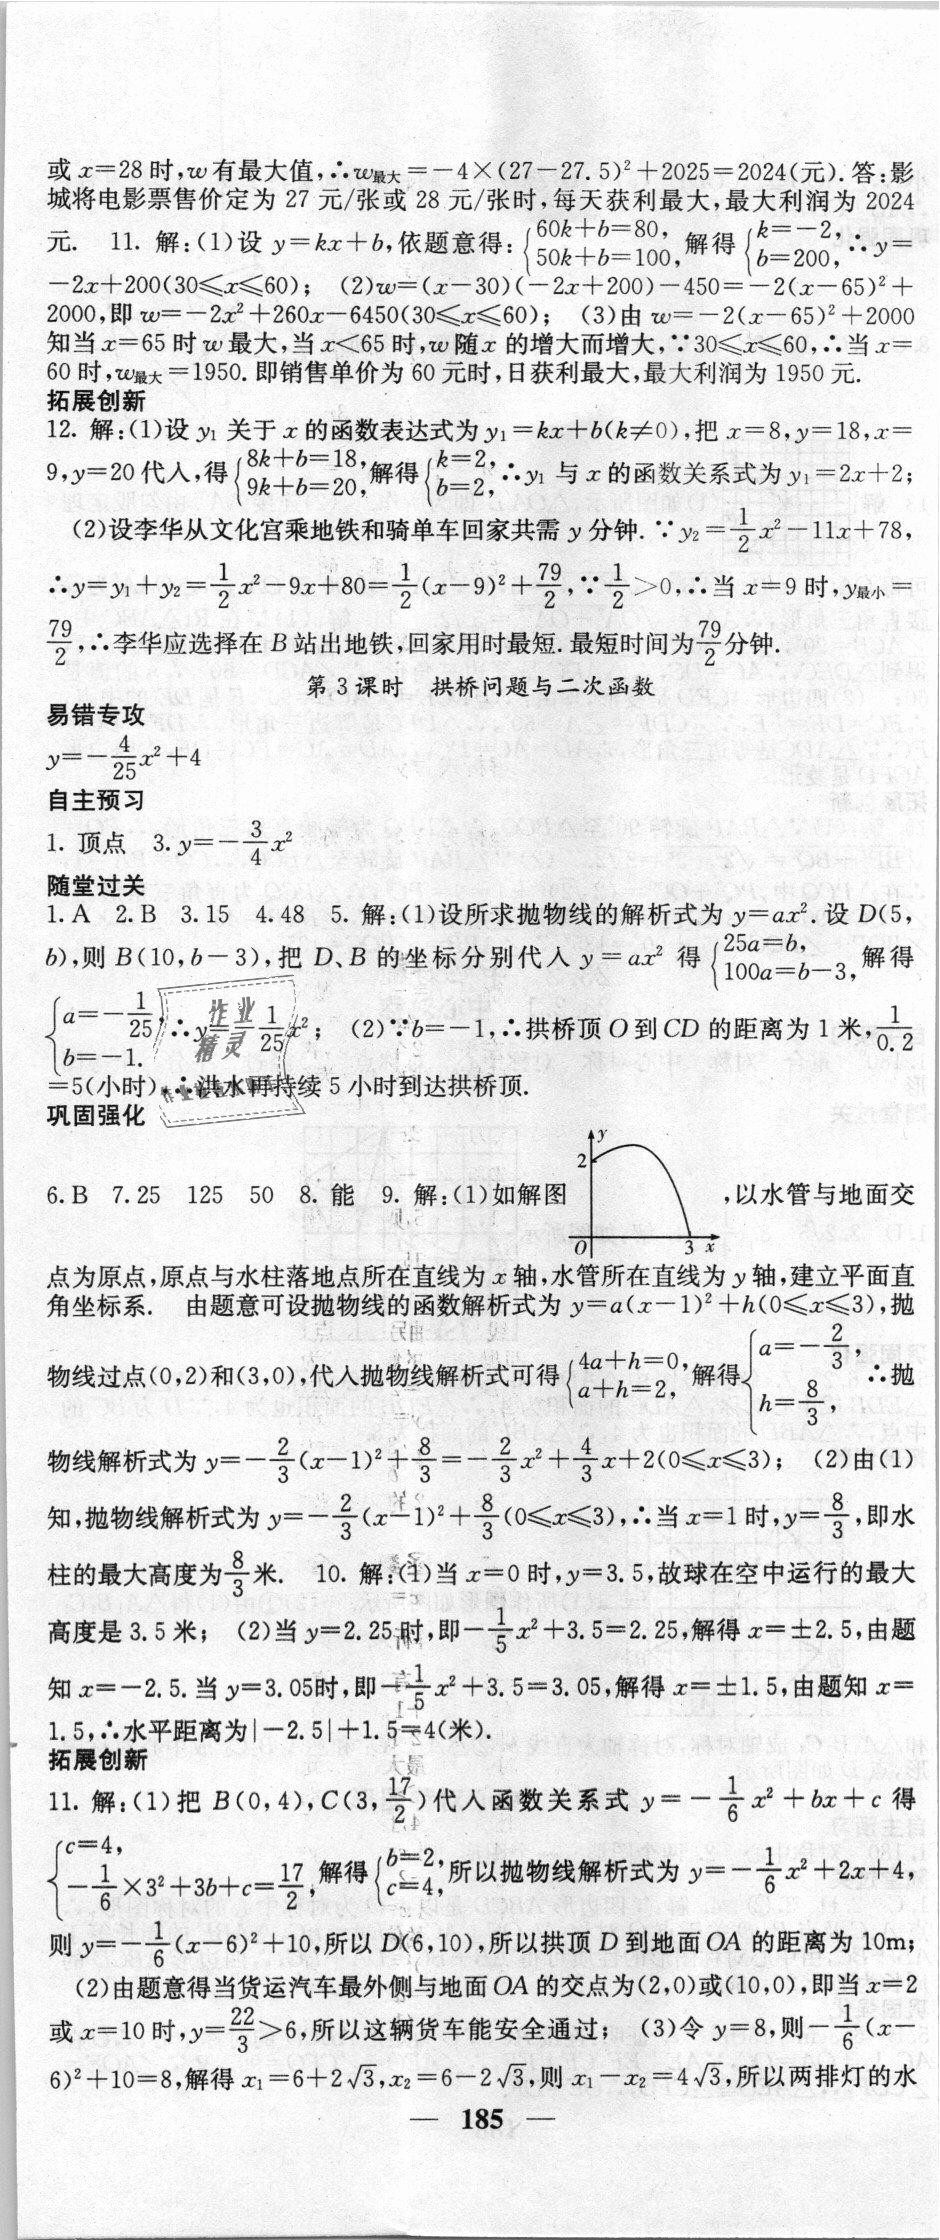 或 x=28 时,w 有最大值,∴w最大=-4×(27-27.5)²+2025=2024(元).答:影
城将电影票售价定为 27 元/张或 28 元/张时,每天获利最大,最大利润为 2024
元. 11. 解:(1)设 y=kx+b,依题意得:{60k+b=80, 50k+b=100, 解得{k=-2, b=200, ∴y=
-2x+200(30≤x≤60); (2)w=(x-30)(-2x+200)-450=-2(x-65)²+
2000,即 w=-2x²+260x-6450(30≤x≤60); (3)由 w=-2(x-65)²+2000
知当 x=65 时 w 最大,当 x<65 时,w 随 x 的增大而增大,∵30≤x≤60,∴当 x=
60 时,w最大=1950.即销售单价为 60 元时,日获利最大,最大利润为 1950 元.
拓展创新
12. 解:(1)设 y₁ 关于 x 的函数表达式为 y₁=kx+b(k≠0),把 x=8,y=18,x=
9,y=20 代入,得{8k+b=18, 9k+b=20, 解得{k=2, b=2, ∴y₁ 与 x 的函数关系式为 y₁=2x+2;
(2)设李华从文化宫乘地铁和骑单车回家共需 y 分钟.∵y₂=1/2x²-11x+78,
∴y=y₁+y₂=1/2x²-9x+80=1/2(x-9)²+79/2,∵1/2>0,∴当 x=9 时,y最小=
79/2,∴李华应选择在 B 站出地铁,回家用时最短.最短时间为79/2分钟.
第 3 课时 拱桥问题与二次函数
易错专攻
y=-4/25x²+4
自主预习
1. 顶点 3. y=-3/4x²
随堂过关
1. A 2. B 3. 15 4. 48 5. 解:(1)设所求抛物线的解析式为 y=ax².设 D(5,
b),则 B(10,b-3),把 D、B 的坐标分别代入 y=ax² 得{25a=b, 100a=b-3, 解得
{a=-1/25, b=-1. ∴y=-1/25x²; (2)∵b=-1,∴拱桥顶 O 到 CD 的距离为 1 米,1/0.2
=5(小时).∴洪水再持续 5 小时到达拱桥顶.
作业
精灵
巩固强化
6. B 7. 25 125 50 8. 能 9. 解:(1)如解图 y 2 O 3 x ,以水管与地面交
点为原点,原点与水柱落地点所在直线为 x 轴,水管所在直线为 y 轴,建立平面直
角坐标系. 由题意可设抛物线的函数解析式为 y=a(x-1)²+h(0≤x≤3),抛
物线过点(0,2)和(3,0),代入抛物线解析式可得{4a+h=0, a+h=2, 解得{a=-2/3, h=8/3, ∴抛
物线解析式为 y=-2/3(x-1)²+8/3=-2/3x²+4/3x+2(0≤x≤3); (2)由(1)
知,抛物线解析式为 y=-2/3(x-1)²+8/3(0≤x≤3),∴当 x=1 时,y=8/3,即水
柱的最大高度为8/3米. 10. 解:(1)当 x=0 时,y=3.5,故球在空中运行的最大
高度是 3.5 米; (2)当 y=2.25时,即-1/5x²+3.5=2.25,解得 x=±2.5,由题
知 x=-2.5.当 y=3.05时,即-1/5x²+3.5=3.05,解得 x=±1.5,由题知 x=
1.5,∴水平距离为|-2.5|+1.5=4(米).
拓展创新
11. 解:(1)把 B(0,4),C(3,17/2)代入函数关系式 y=-1/6x²+bx+c 得
{c=4, -1/6×3²+3b+c=17/2, 解得{b=2, c=4, 所以抛物线解析式为 y=-1/6x²+2x+4,
则 y=-1/6(x-6)²+10,所以 D(6,10),所以拱顶 D 到地面 OA 的距离为 10m;
(2)由题意得当货运汽车最外侧与地面 OA 的交点为(2,0)或(10,0),即当 x=2
或 x=10 时,y=22/3>6,所以这辆货车能安全通过; (3)令 y=8,则-1/6(x-
6)²+10=8,解得 x₁=6+2√3,x₂=6-2√3,则 x₁-x₂=4√3,所以两排灯的水
— 185 —